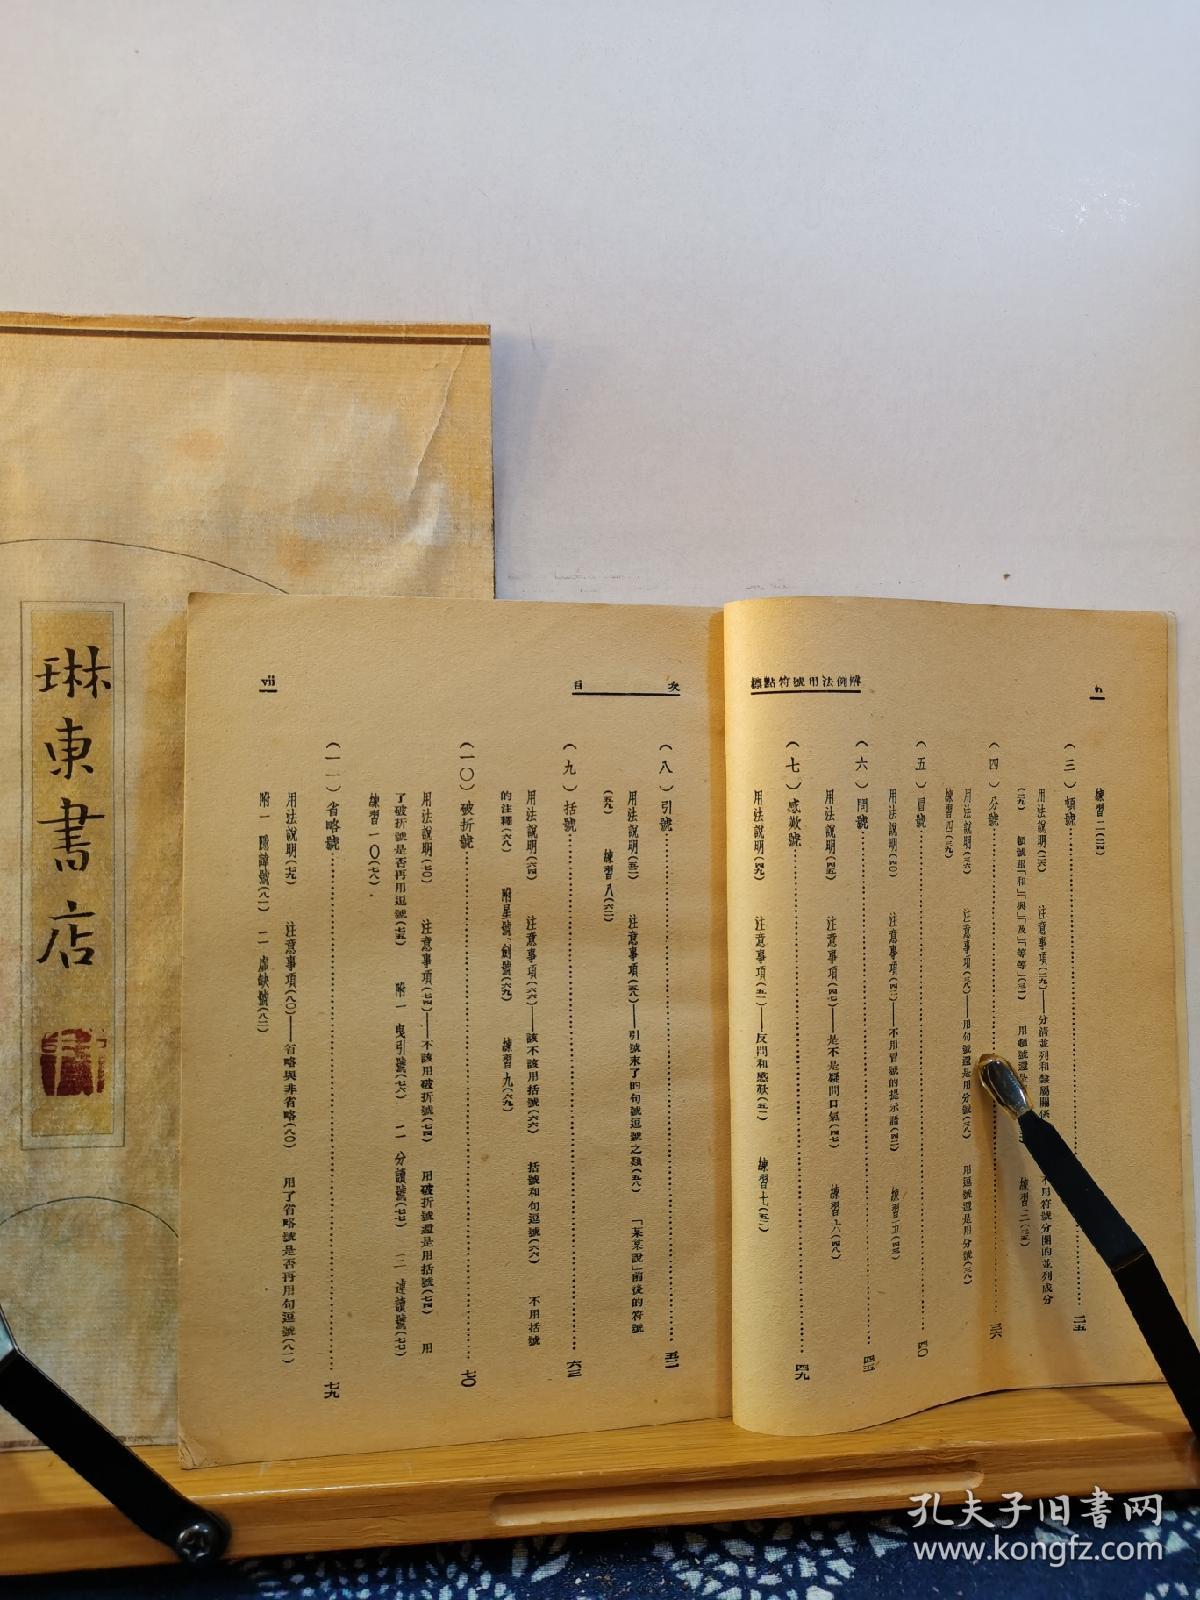 琳東書店
標點符號用法例解
練習二(二四)
(三)頓號……二五
用法說明(二六) 注意事項(二九)——分清並列和隸屬關係
不用符號分開的並列成分
(四)分號……三六
用法說明(三六) 注意事項(三八)——用句號還是用分號(三八) 用逗號還是用分號(三八)
練習四(三九)
(五)冒號……四〇
用法說明(四〇) 注意事項(四二)——不用冒號的提示語(四二) 練習五(四三)
(六)問號……四五
用法說明(四五) 注意事項(四七)——是不是疑問口氣(四七) 練習六(四八)
(七)感歎號……四九
用法說明(四九) 注意事項(五一)——反問和感歎(五一) 練習七(五一)
目次
vii
(八)引號……五二
用法說明(五二) 注意事項(五八)——引號末了的句號逗號之類(五八) 「某某說」前後的符號
(五九) 練習八(六二)
(九)括號……六三
用法說明(六四) 注意事項(六六)——該不該用括號(六六) 括號和句逗號(六六) 不用括號
的注釋(六八) 附星號、劍號(六九) 練習九(六九)
(一〇)破折號……七〇
用法說明(七〇) 注意事項(七四)——不該用破折號(七四) 用破折號還是用括號(七四) 用
了破折號是否再用逗號(七五) 附一 曳引號(七六) 二 分讀號(七七) 三 連讀號(七七)
練習一〇(七八)
(一一)省略號……七九
用法說明(七九) 注意事項(八〇)——省略與非省略(八〇) 用了省略號是否再用句逗號(八一)
附一 隱諱號(八一) 二 虛缺號(八二)
孔夫子旧書网
www.kongfz.com